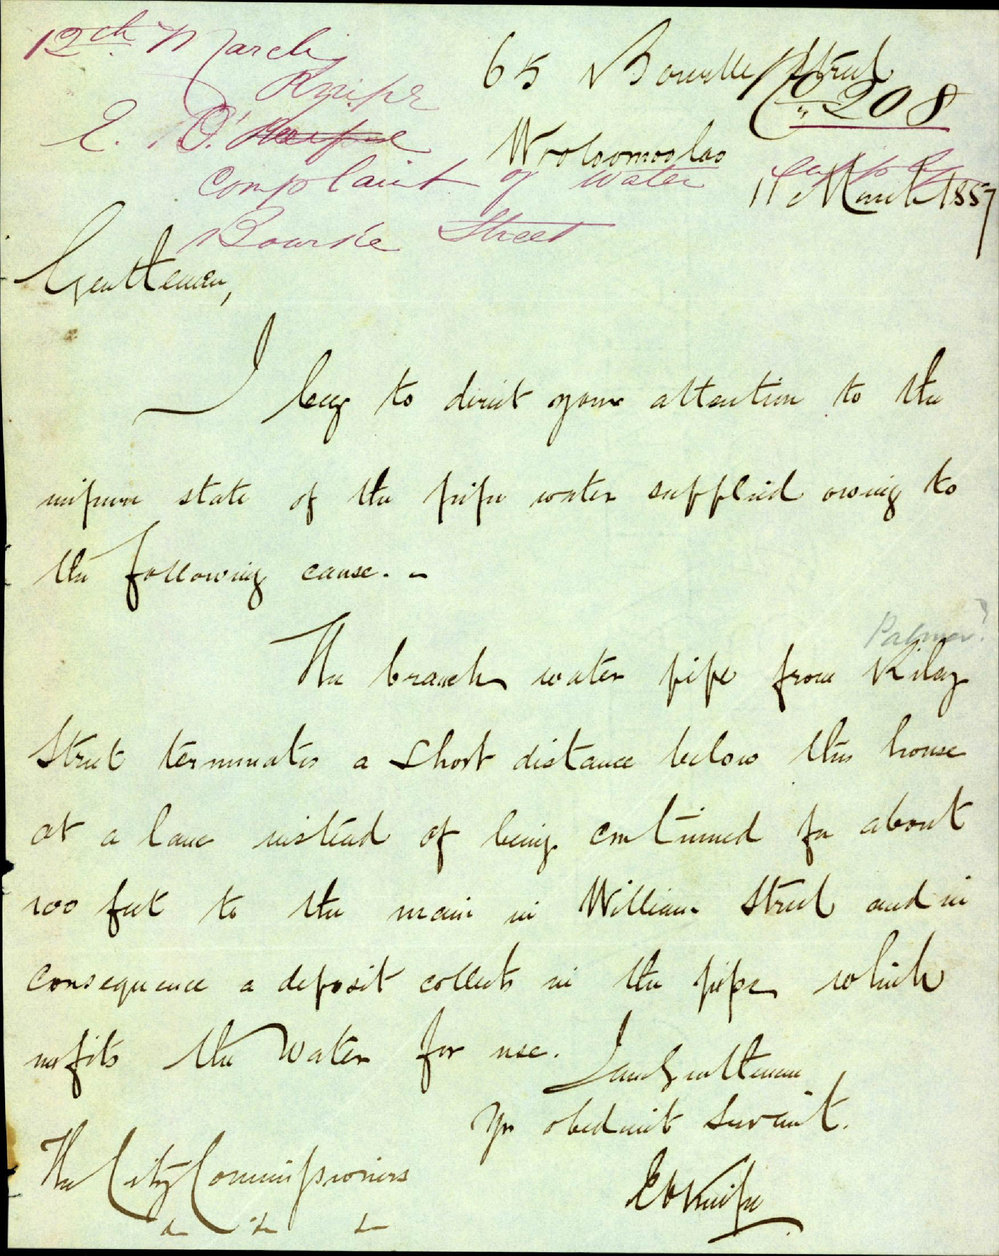 12th March
Knipe
E. O'
complaint of water supply
Bourke Street
208
65 Bourke Street
Wooloomooloo
11 March 1857
Gentlemen,
I beg to direct your attention to the
impure state of the pipe water supplied owing to
the following cause. -
Palmer?
The branch water pipe from Riley
Street terminates a short distance below this house
at a lane instead of being continued for about
100 feet to the main in William Street and in
consequence a deposit collects in the pipe which
unfits the water for use.
I am Gentlemen
Yr obedient Servant.
E O Knipe
The City Commissioners